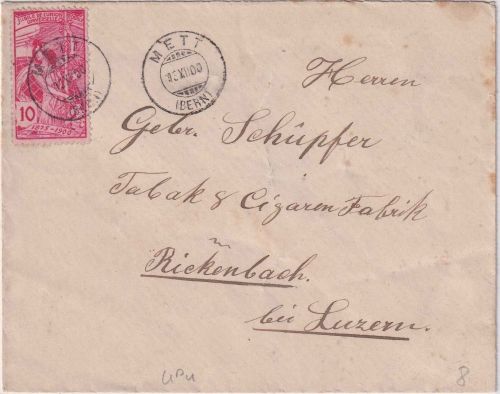 METT
(BERN)
10
1875-1900
METT
XII.00
(BERN)
Herren
Gebr. Schüpfer
Tabak & Cigaren Fabrik
in
Rickenbach.
bei Luzern.
UPU
8